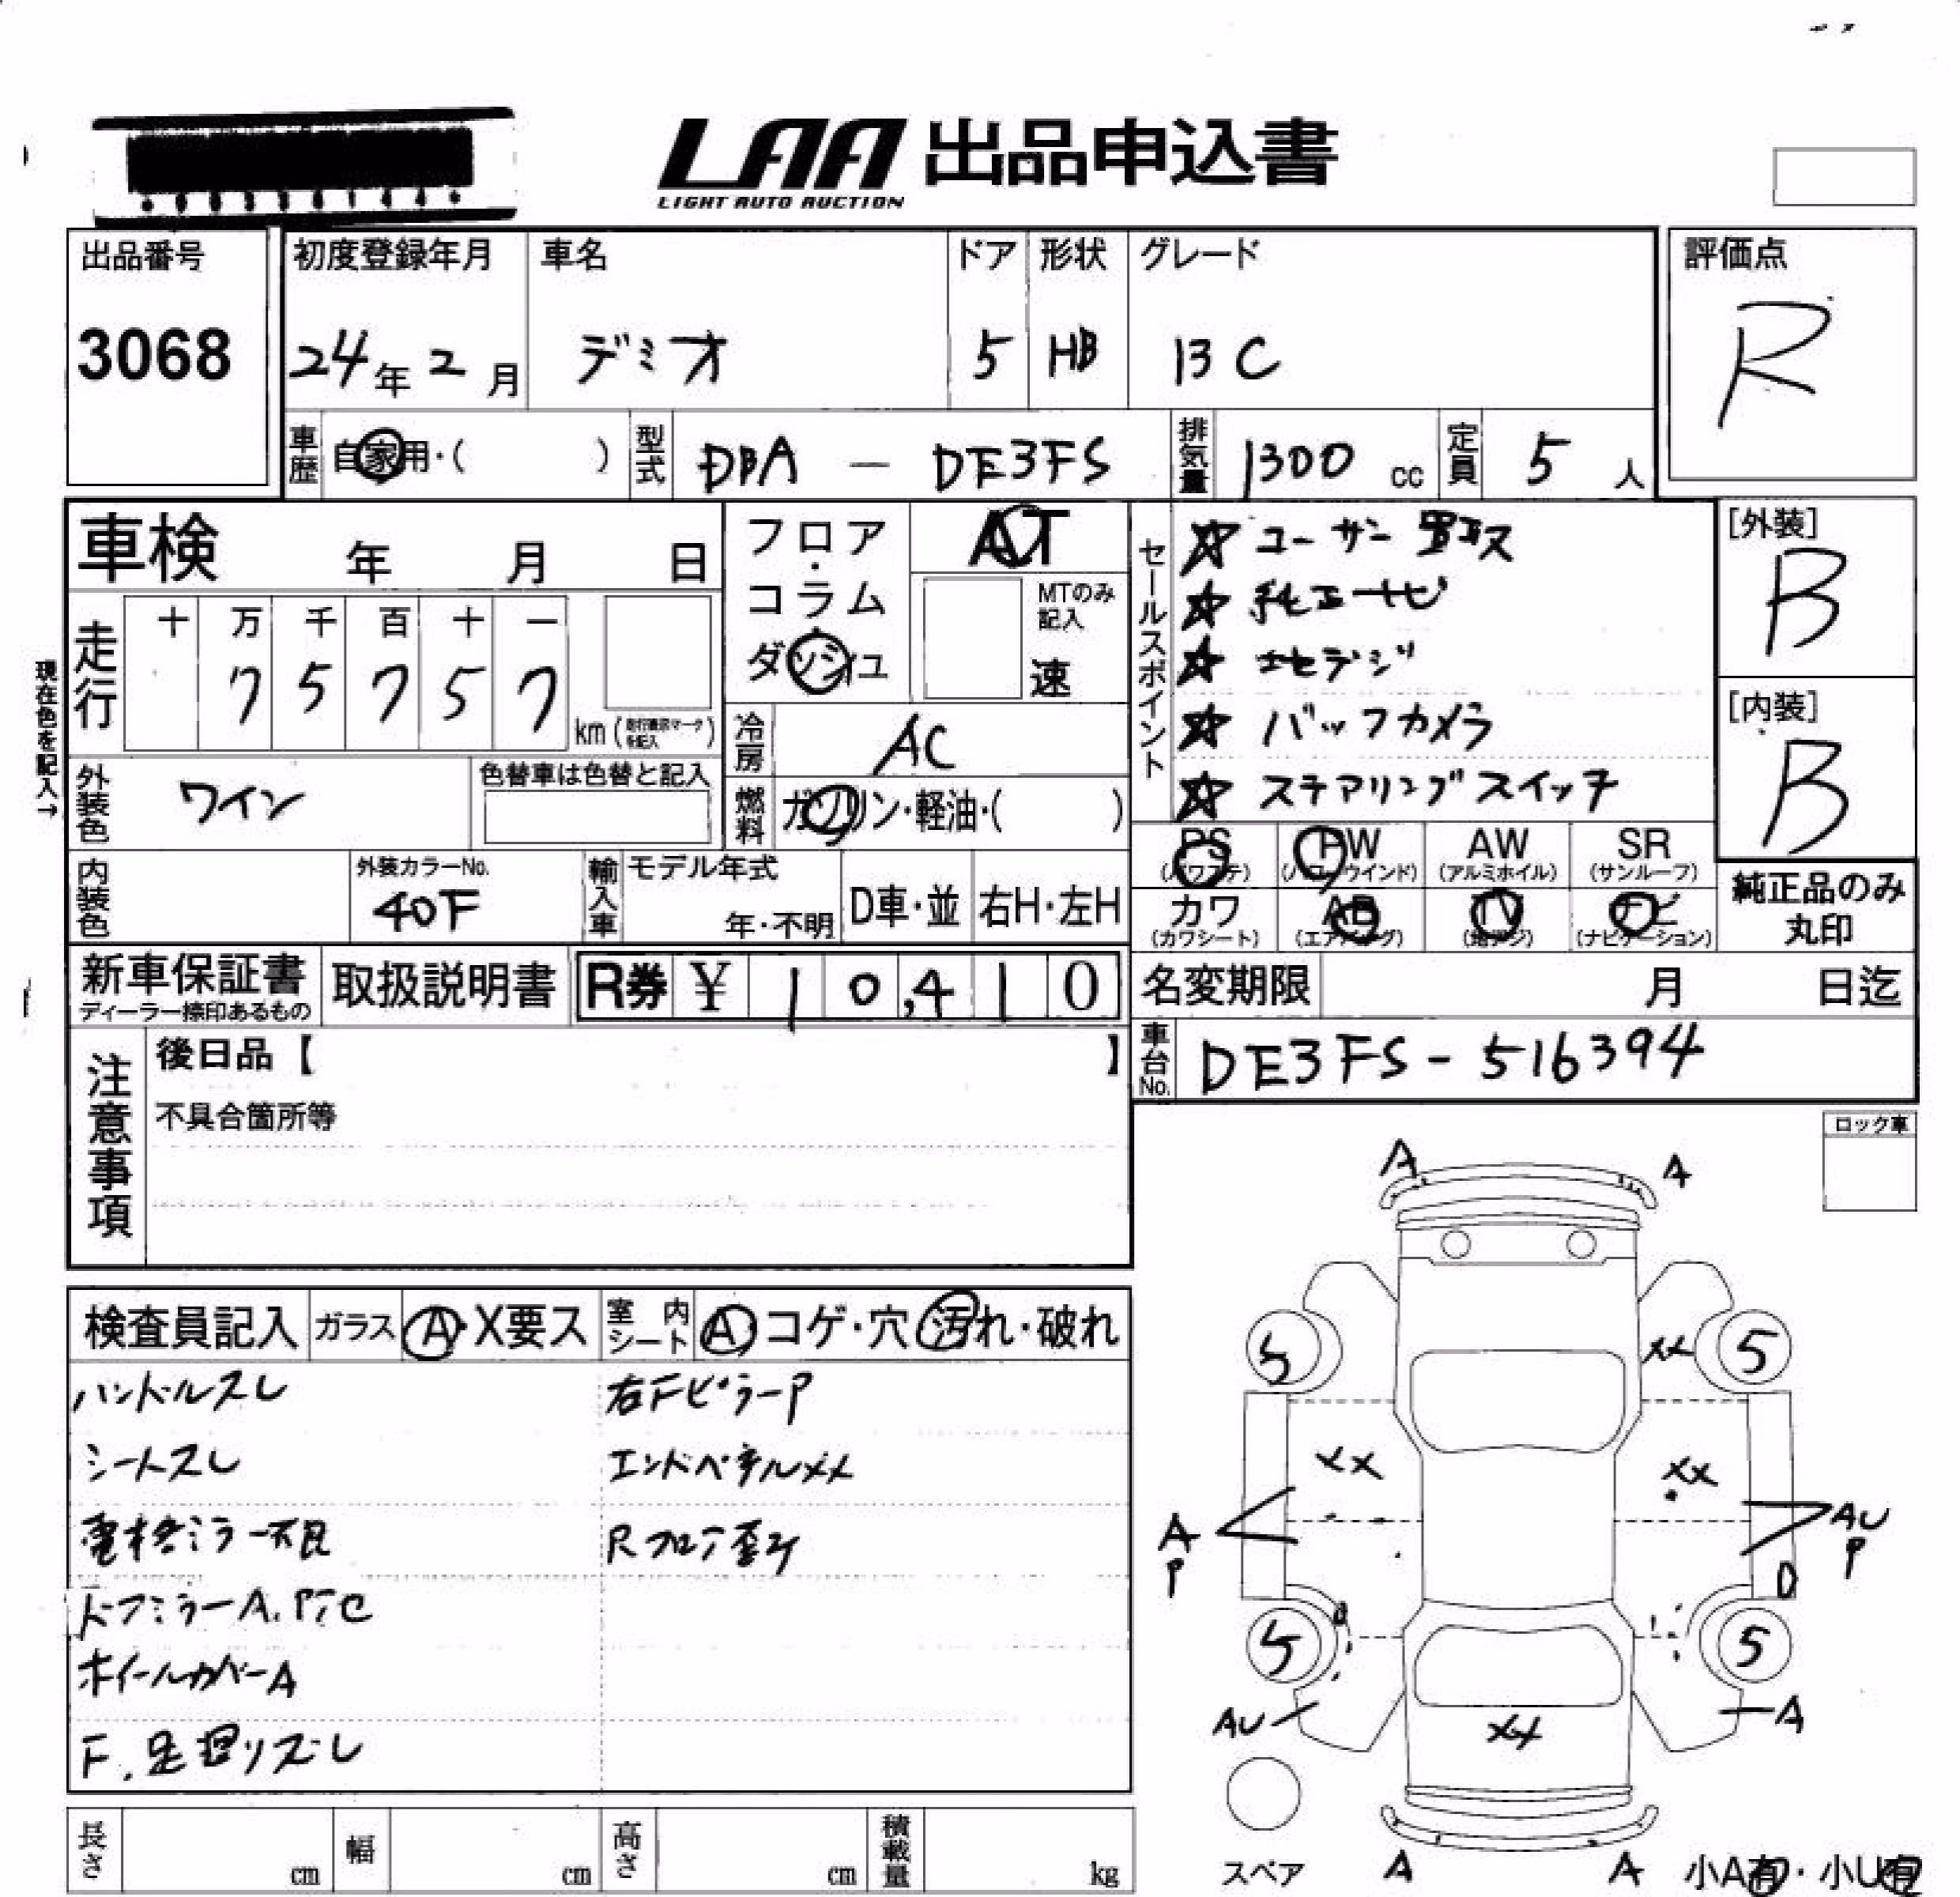 LAA 出品申込書
LIGHT AUTO AUCTION
出品番号 初度登録年月 車名 ドア 形状 グレード 評価点
3068 24年2月 デミオ 5 HB 13C R
車歴 自家用・( ) 型式 DBA - DE3FS 排気量 1300cc 定員 5人
車検 年 月 日
フロア・コラム・ダッシュ AT
MTのみ記入 速
セールスポイント
☆ ユーザー買取
☆ 純正ナビ
☆ 地デジ
☆ バックカメラ
☆ ステアリングスイッチ
[外装]
B
[内装]
B
現在色を記入→
走行 十 万 千 百 十 一
7 5 7 5 7 km
冷房 AC
外装色 ワイン 色替車は色替と記入
燃料 ガソリン・軽油・( )
PS (パワステ) PW (パワーウインド) AW (アルミホイル) SR (サンルーフ)
カワ (カワシート) AB (エアバッグ) TV (地デジ) ナビ (ナビゲーション)
純正品のみ丸印
内装色 外装カラーNo. 40F 輸入車 モデル年式 年・不明 D車・並 右H・左H
新車保証書 ディーラー捺印あるもの 取扱説明書 R券 ¥ 10,410
名変期限 月 日迄
車台No. DE3FS-516394
注意事項
後日品【 】
不具合箇所等
ロック車
検査員記入 ガラス A・X要ス 室内シート A・コゲ・穴・汚れ・破れ
ハンドルスレ 右FピラーP
シートスレ エンドパネルXX
電格ミラー不良 Rフロア歪み
ドアミラーA.P.C
ホイールカバーA
F.足廻りズレ
A A
5 XX 5
XX XX
A P AU P
D
5 5
AU XX A
スペア A A 小A有・小U有
長さ cm 幅 cm 高さ cm 積載量 kg